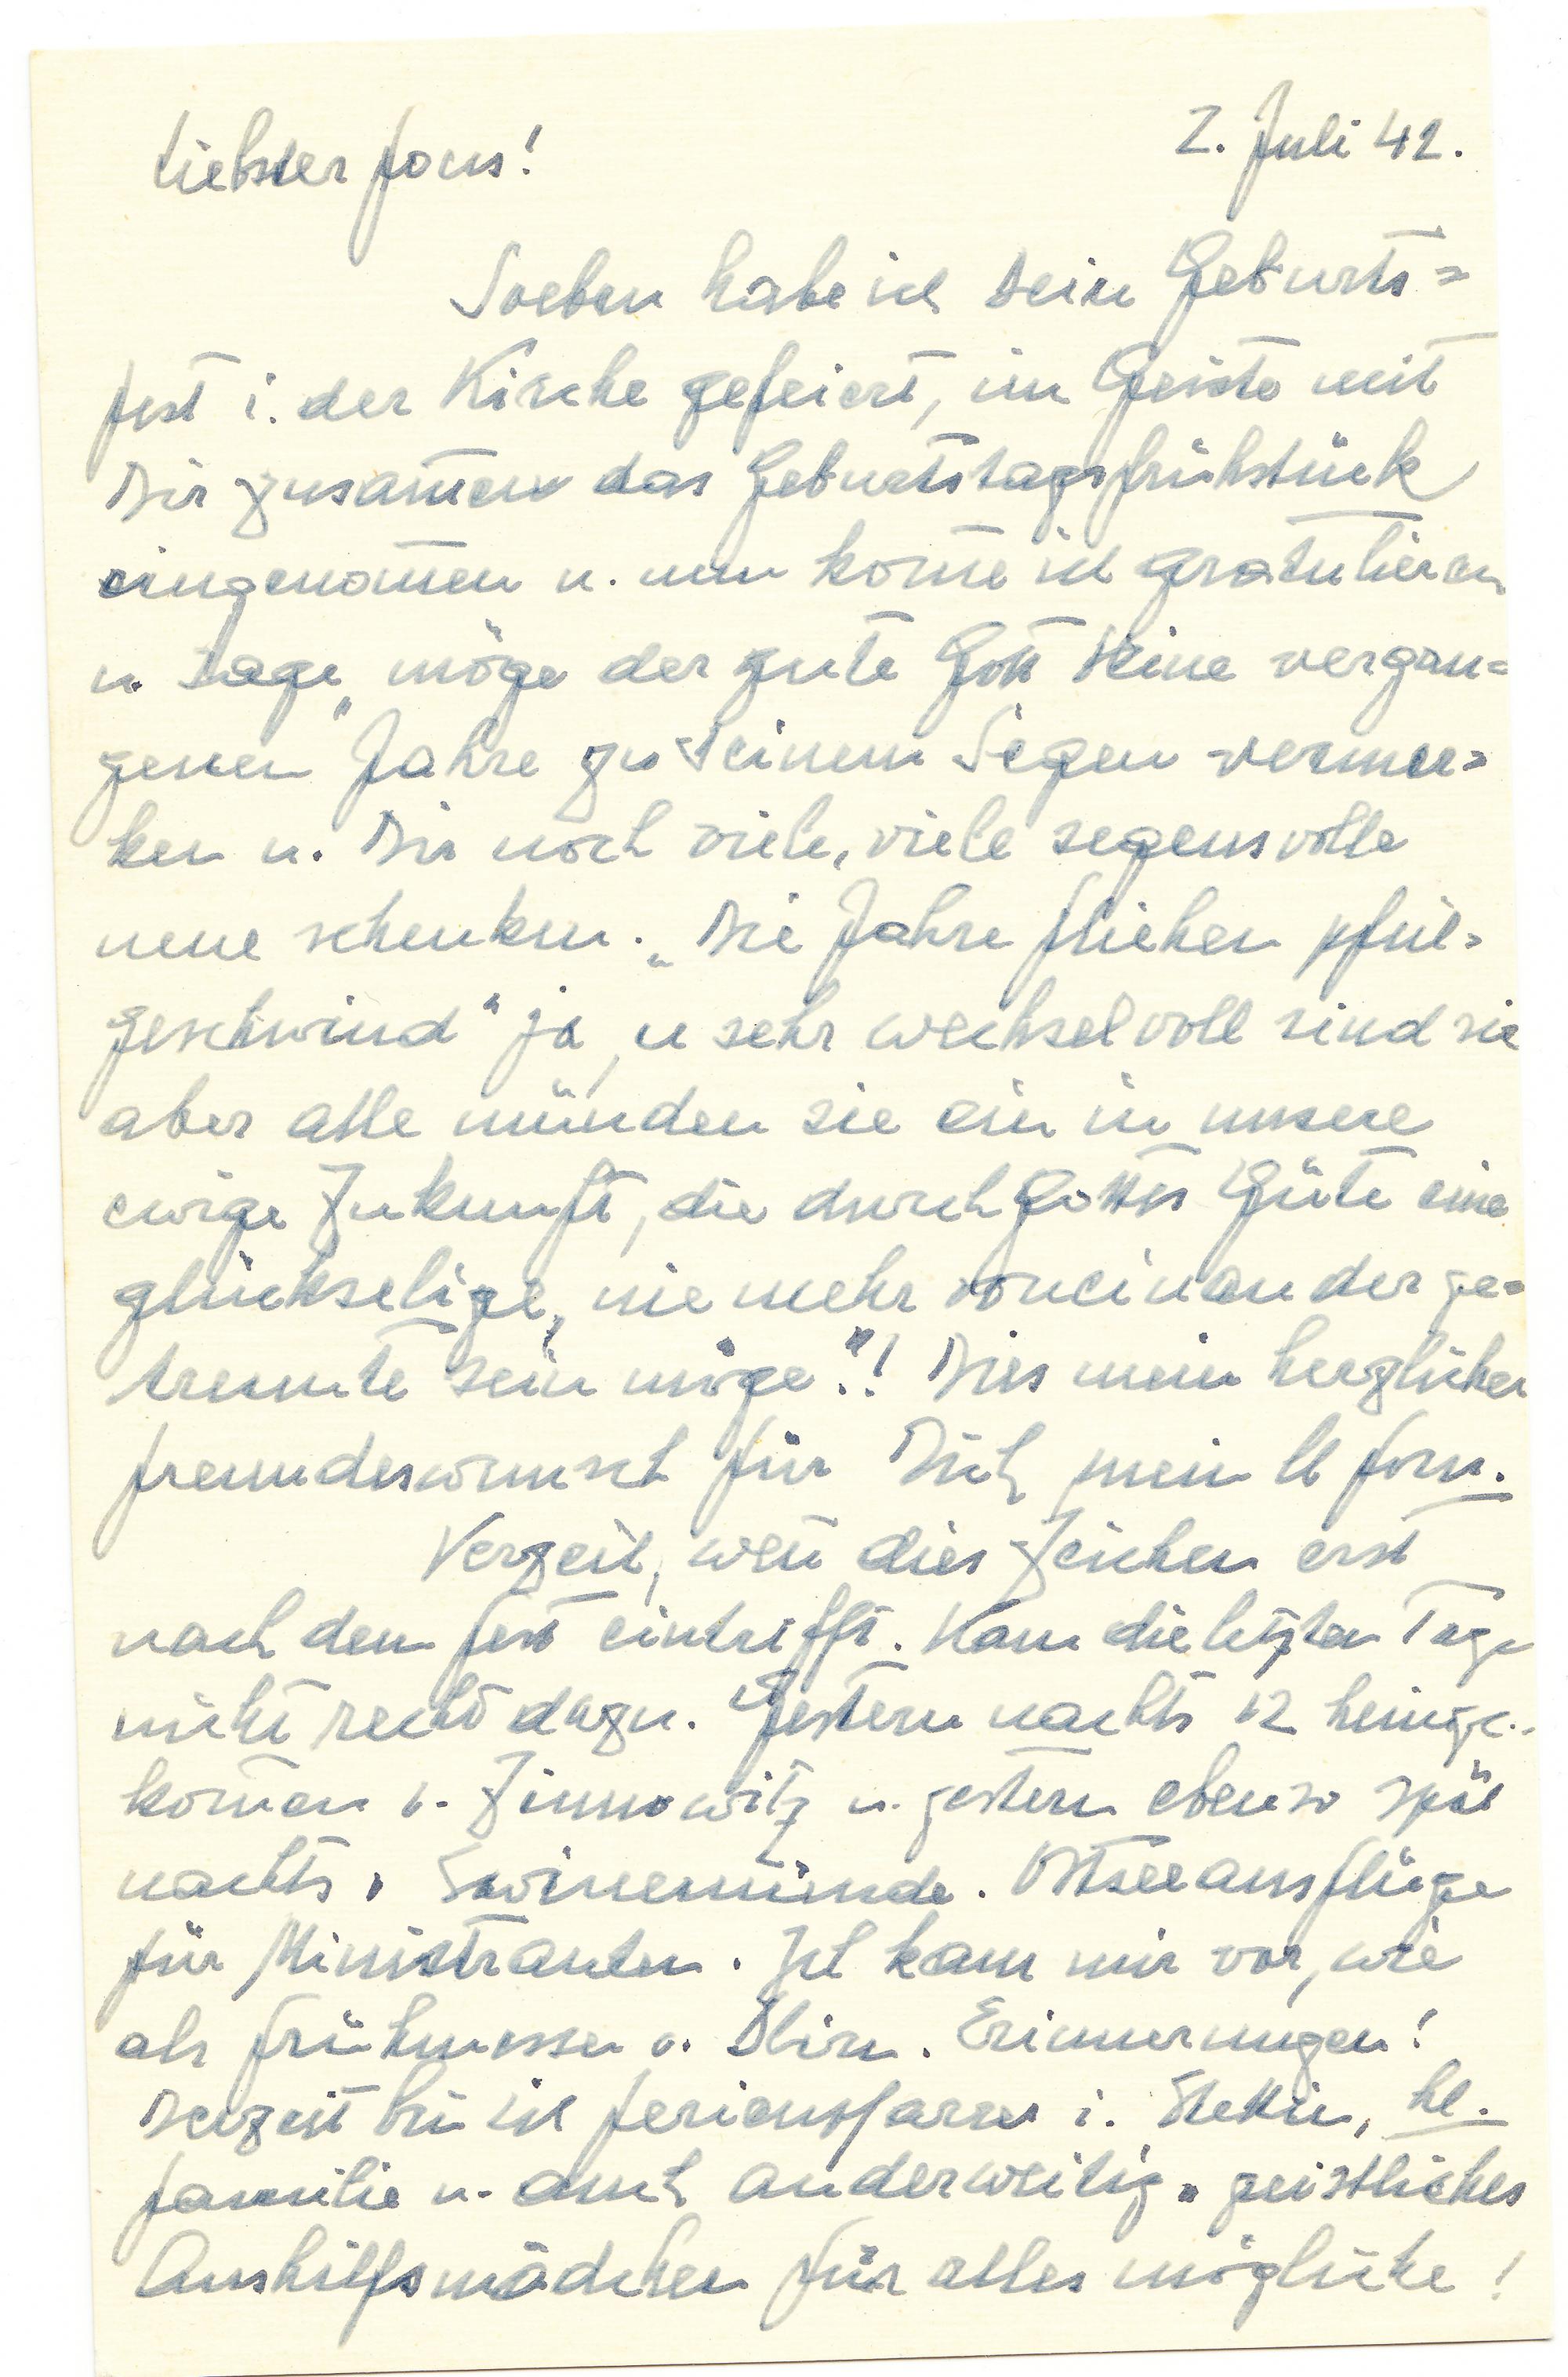 2. Juli 42.
Liebster fons!
Soeben habe ich Dein Geburts=
fest i. der Kirche gefeiert, im Geiste mit
Dir zusam̅en das Geburtstagsfrühstück
eingenom̅en u. nun kom̅e ich gratulieren
u. sage „möge der gute Gott Deine vergan=
genen Jahre zu Deinem Segen vermer=
ken u. Dir noch viele, viele segensvolle
neue schenken. „Die Jahre fliehen pfeil=
geschwind" ja, u sehr wechselvoll sind sie
aber alle münden sie ein in unsere
ewige Zukunft, die durch Gottes Güte eine
glückselige, nie mehr voneinander ge=
trennte sein möge"! Dies mein herzlicher
Freundeswunsch für Dich, mein lb fons.
Verzeih, wen̅ dies Zeichen erst
nach dem Fest eintrifft. Kam die letzten Tage
nicht recht dazu. Gestern nachts 12 heimge=
kom̅en v. Zinnowitz u. gestern ebenso spät
nachts v. Swinemünde. Ostseeausflüge
für Ministranten. Ich kam mir vor, wie
als Frühmesser v. Erinnerungen!
Derzeit bin ich Ferienpfarrer i. Stettin, hl.
Familie u. auch anderweitig geistliches
Aushilfsmädchen für alles mögliche!